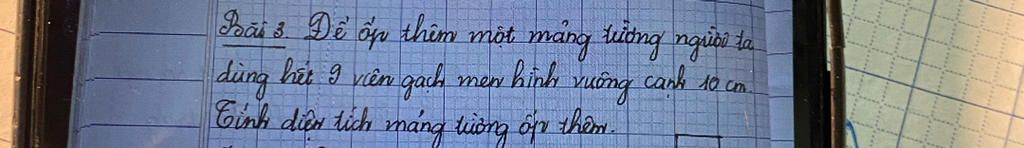 Bài 3. Để ốp thêm một mảng tường người ta
dùng hết 9 viên gạch men hình vuông cạnh 10 cm
Tính diện tích mảng tường ốp thêm.